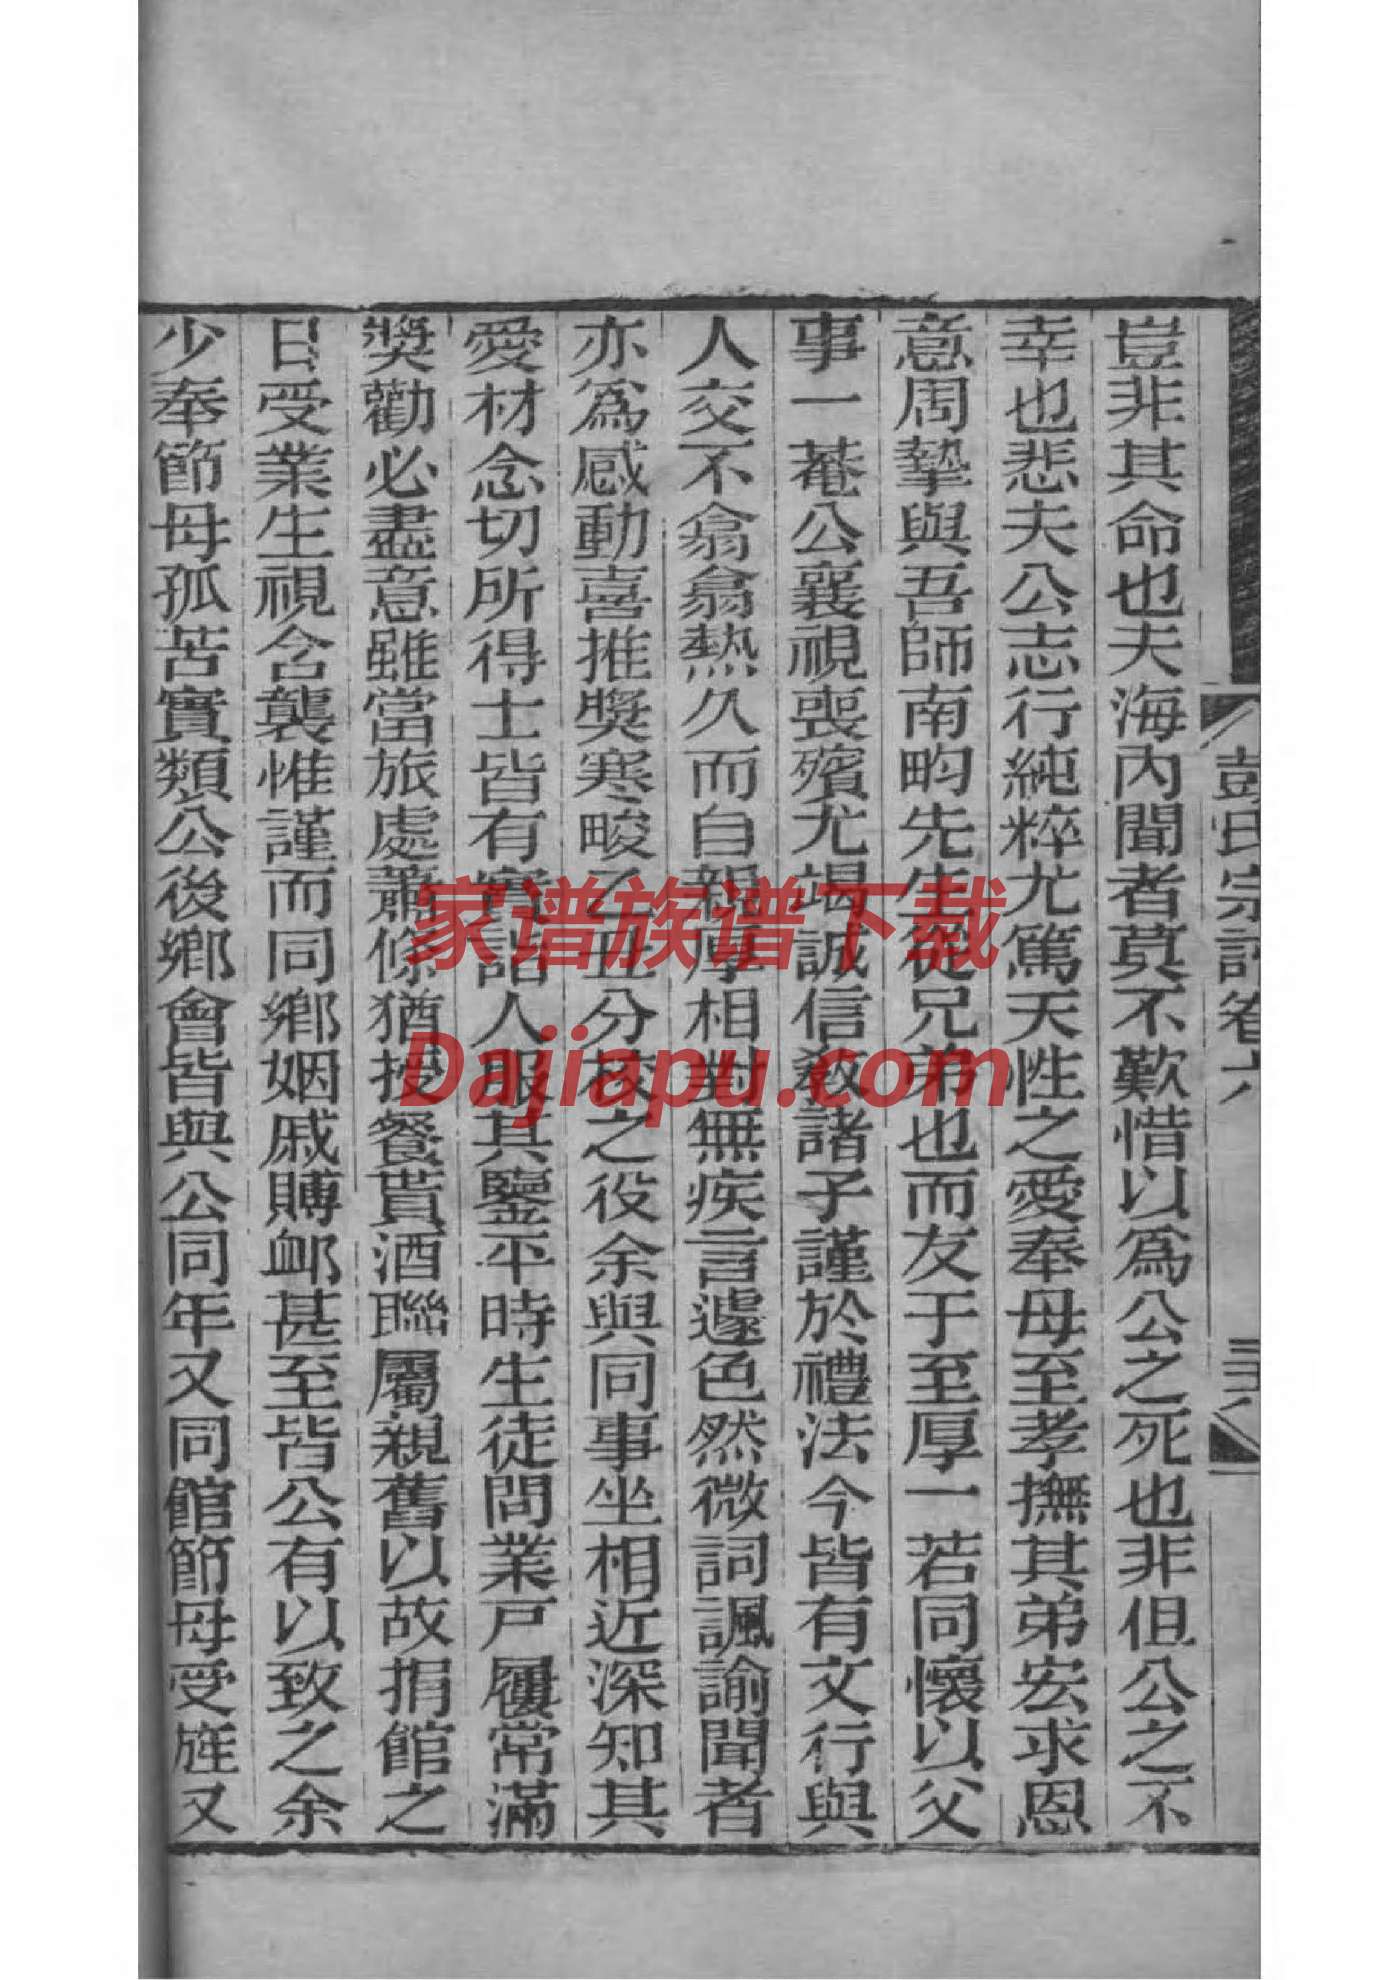 彭氏宗譜卷六
豈非其命也夫海內聞者莫不歎惜以爲公之死也非但公之不
幸也悲夫公志行純粹尤篤天性之愛奉母至孝撫其弟宏求恩
意周摯與吾師南畇先生從兄弟也而友于至厚一若同懷以父
事一菴公襄視喪殯尤竭誠信敎諸子謹於禮法今皆有文行與
人交不翕翕熱久而自親厚相對無疾言遽色然微詞諷諭聞者
亦爲感動喜推獎寒畯乙丑分校之役余與同事坐相近深知其
愛材念切所得士皆有實詣人服其鑒平時生徒問業戸屨常滿
獎勸必盡意雖當旅處蕭條猶授餐貰酒聯屬親舊以故捐館之
日受業生視含襲惟謹而同鄉姻戚賻衈甚至皆公有以致之余
少奉節母孤苦實類公後鄉會皆與公同年又同館節母受旌又
家谱族谱下载
Dajiapu.com